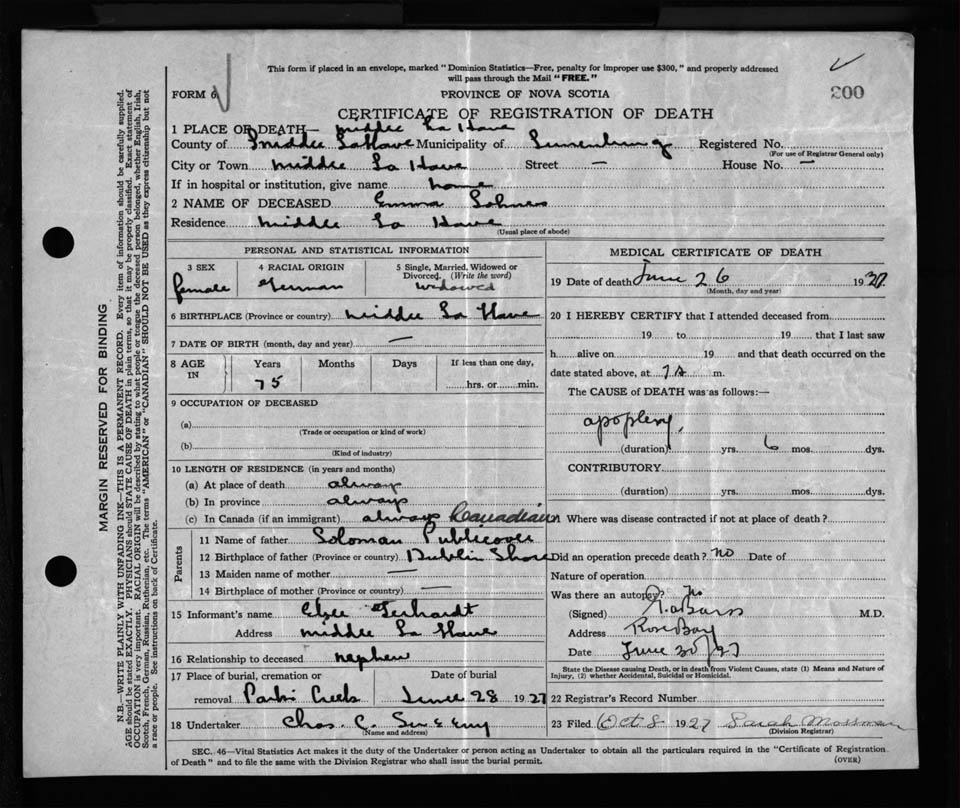 This form if placed in an envelope, marked "Dominion Statistics—Free, penalty for improper use $300," and properly addressed
will pass through the Mail "FREE."
FORM 6 PROVINCE OF NOVA SCOTIA 200
CERTIFICATE OF REGISTRATION OF DEATH
1 PLACE OF DEATH— Middle La Have
County of Middle LaHave Municipality of Lunenburg Registered No.
(For use of Registrar General only)
City or Town Middle La Have Street — House No. —
If in hospital or institution, give name home
2 NAME OF DECEASED Emma Lohnes
Residence Middle La Have
(Usual place of abode)
PERSONAL AND STATISTICAL INFORMATION
3 SEX 4 RACIAL ORIGIN 5 Single, Married, Widowed or
Divorced. (Write the word)
female German widowed
6 BIRTHPLACE (Province or country) Middle La Have
7 DATE OF BIRTH (month, day and year) —
8 AGE IN Years Months Days If less than one day,
75 hrs. or min.
9 OCCUPATION OF DECEASED
(a)
(Trade or occupation or kind of work)
(b)
(Kind of industry)
10 LENGTH OF RESIDENCE (in years and months)
(a) At place of death always
(b) In province always
(c) In Canada (if an immigrant) always Canadian
Parents
11 Name of father Soloman Publicover
12 Birthplace of father (Province or country) Dublin Shore
13 Maiden name of mother —
14 Birthplace of mother (Province or country) —
15 Informant's name Clyde Gerhardt
Address Middle La Have
16 Relationship to deceased nephew
17 Place of burial, cremation or Date of burial
removal June 28 1927
18 Undertaker Chas. C. Sweeny
(Name and address)
MEDICAL CERTIFICATE OF DEATH
19 Date of death June 26 1927
(Month, day and year)
20 I HEREBY CERTIFY that I attended deceased from
19 to 19 that I last saw
h alive on 19 and that death occurred on the
date stated above, at m.
The CAUSE of DEATH was as follows:—
apoplexy
(duration) yrs. 6 mos. dys.
CONTRIBUTORY
(duration) yrs. mos. dys.
21 Where was disease contracted if not at place of death?
Did an operation precede death? no Date of
Nature of operation
Was there an autopsy? No
(Signed) M.D.
Address Rose Bay
Date June 30/27
State the Disease causing Death, or in death from Violent Causes, state (1) Means and Nature of
Injury, (2) whether Accidental, Suicidal or Homicidal.
22 Registrar's Record Number
23 Filed Oct 8 1927 Sarah Mossman
(Division Registrar)
SEC. 46—Vital Statistics Act makes it the duty of the Undertaker or person acting as Undertaker to obtain all the particulars required in the "Certificate of Registration
of Death" and to file the same with the Division Registrar who shall issue the burial permit.
(OVER)
MARGIN RESERVED FOR BINDING
N.B.—WRITE PLAINLY WITH UNFADING INK—THIS IS A PERMANENT RECORD. Every item of information should be carefully supplied.
AGE should be stated EXACTLY. PHYSICIANS should STATE CAUSE OF DEATH in plain terms, so that it may be properly classified. Exact statement of
OCCUPATION is very important. RACIAL ORIGIN will be described by stating to what people or tongue the deceased person belonged, whether English, Irish,
Scotch, French, German, Russian, Ruthenian, etc. The terms "AMERICAN" or "CANADIAN" SHOULD NOT BE USED as they express citizenship but not
a race or people. See instructions on back of Certificate.